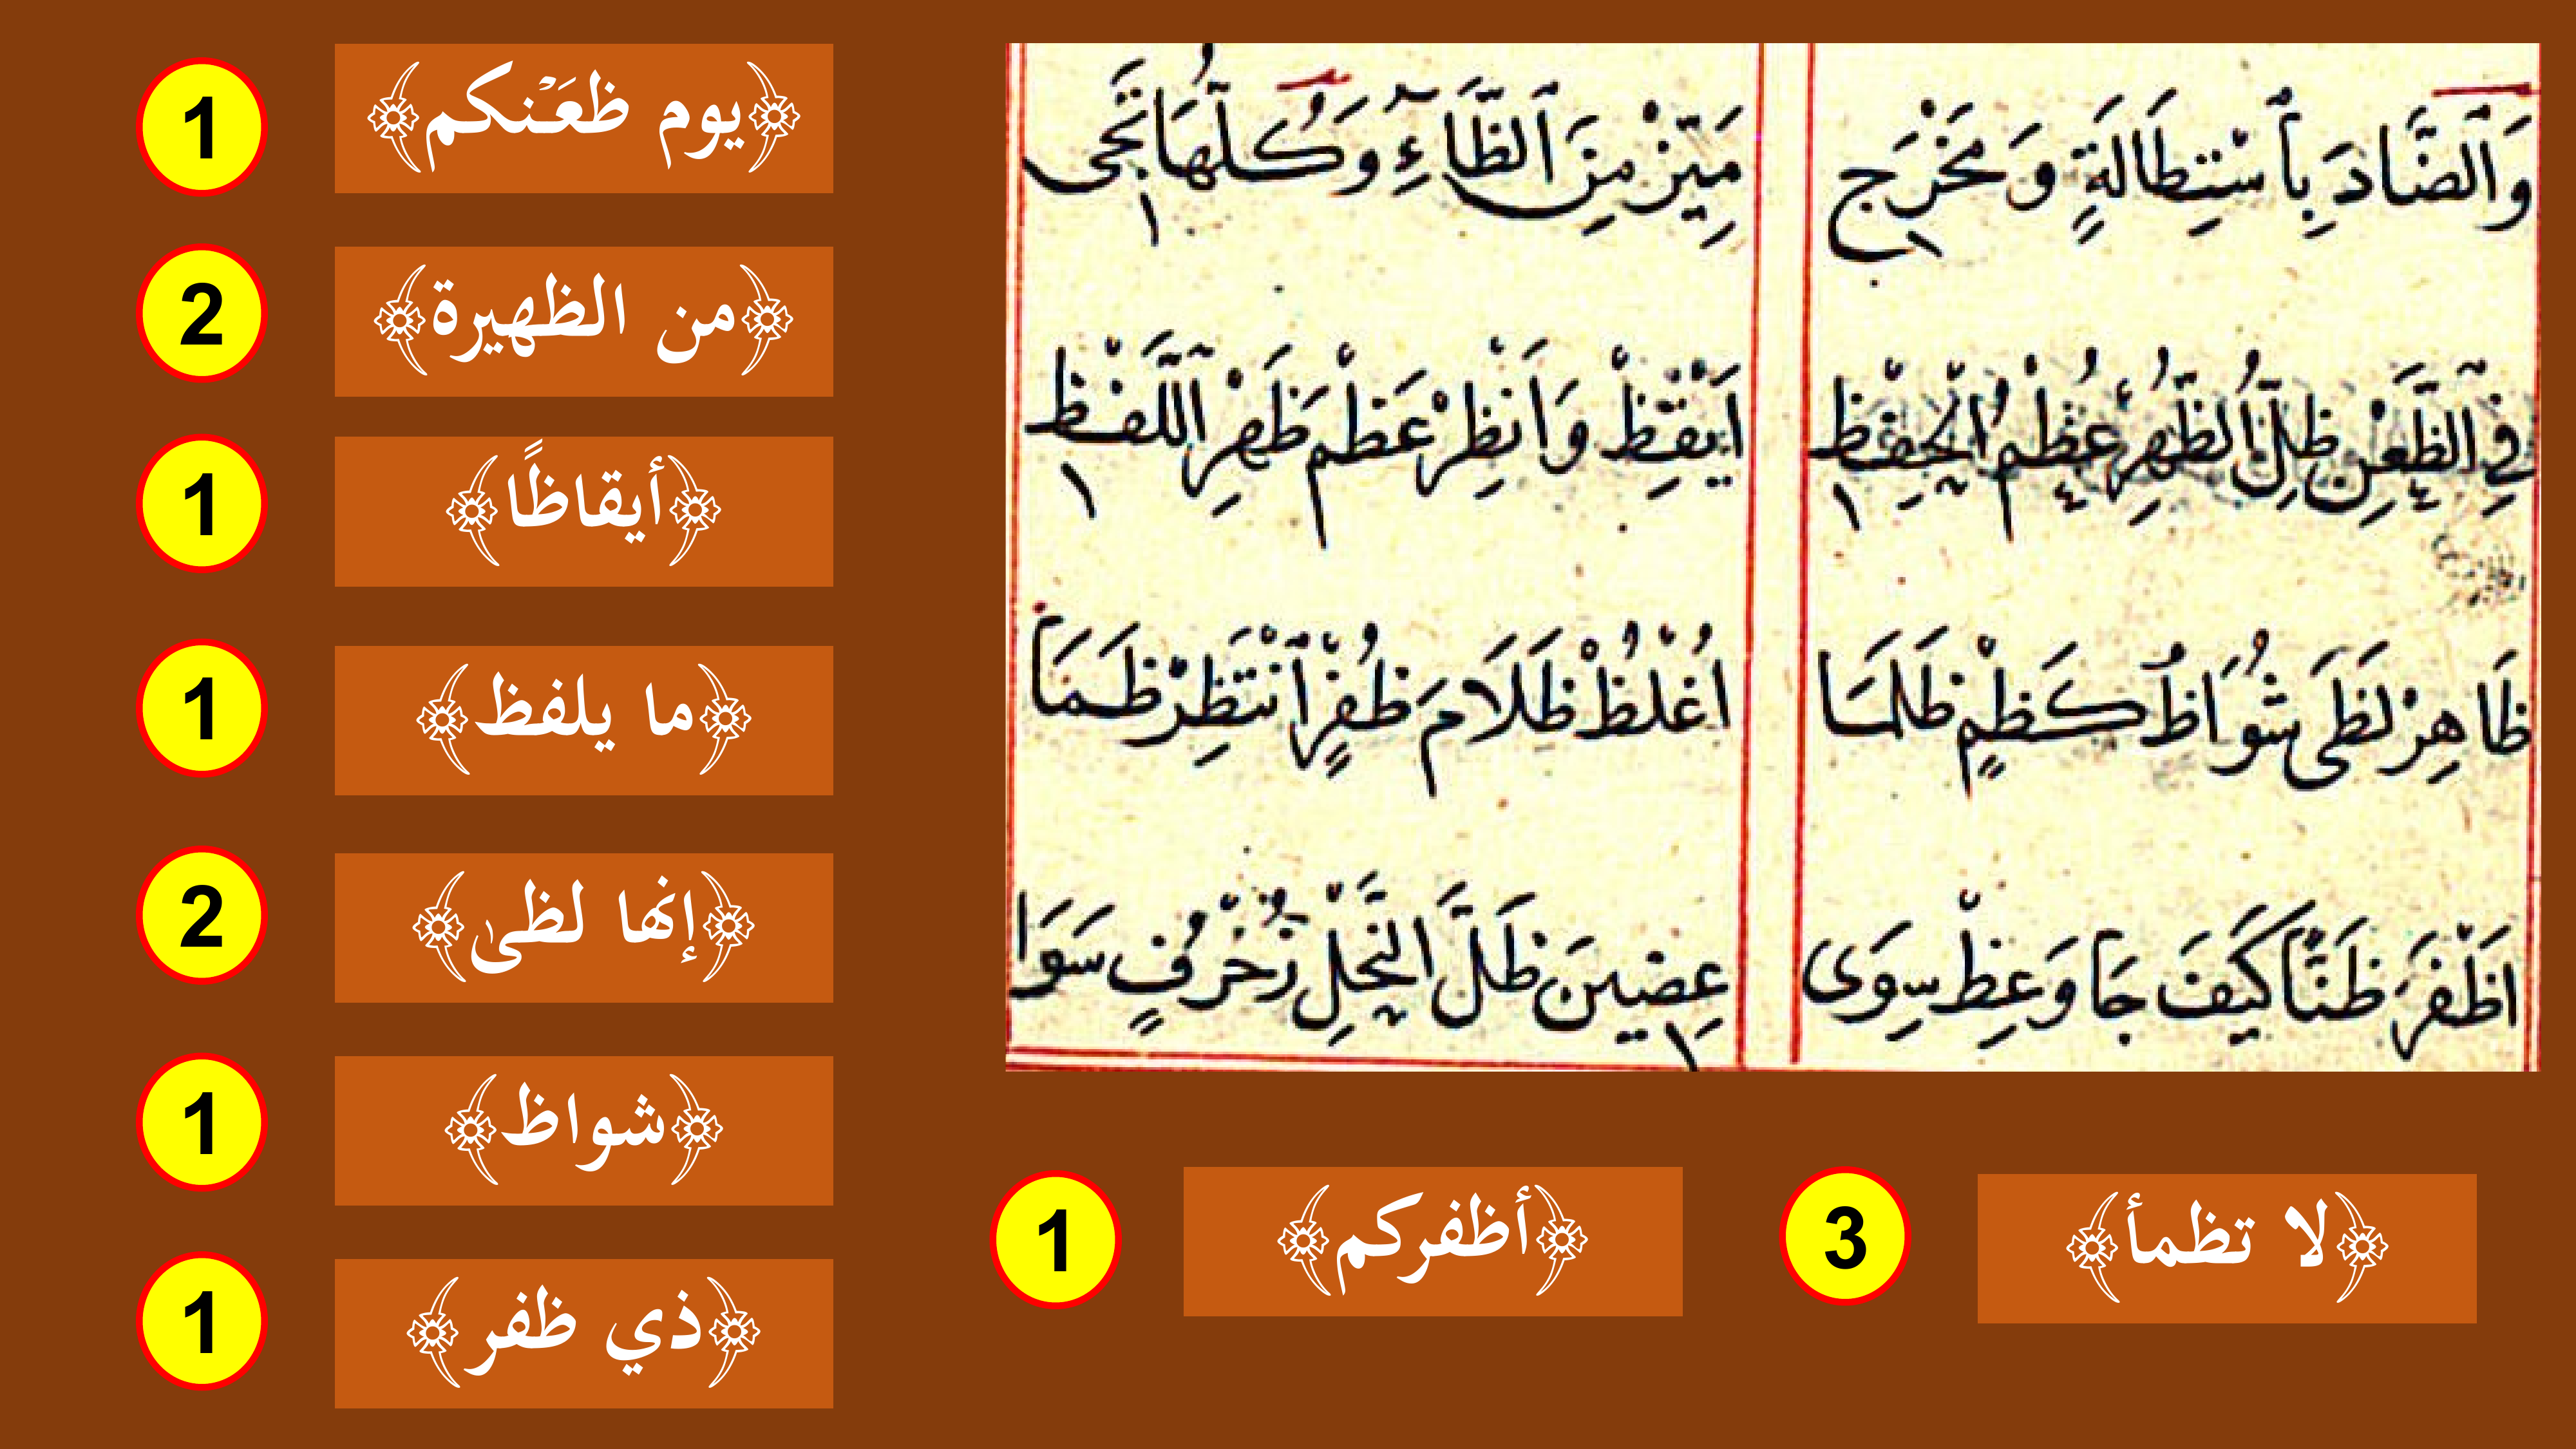 وَٱلضَّادَ بِٱسْتِطَالَةٍ وَمَخْرَجِ مَيِّزْ مِنَ ٱلظَّاءِ وَكُلُّهَا تَجِى
فِي ٱلظَّعْنِ ظِلُّ ٱلظُّهْرِ عُظْمُ ٱلْحِفْظِ اَيْقِظْ وَاَنْظِرْ عَظْمَ ظَهْرِ اللَّفْظِ
ظَاهِرْ لَظَى شُوَاظُ كَظْمٍ ظَلَمَا اُغْلُظْ ظَلَامَ ظُفْرٍ ٱنْتَظِرْ ظَمَا
اَظْفَرَ ظَنًّا كَيْفَ جَا وَعِظْ سِوَى عِضِينَ ظَلَّ النَّحْلِ زُخْرُفٍ سَوَا
1 ﴿يوم ظعَنكم﴾
2 ﴿من الظهيرة﴾
1 ﴿أيقاظًا﴾
1 ﴿ما يلفظ﴾
2 ﴿إنها لظىٰ﴾
1 ﴿شواظ﴾
1 ﴿ذي ظفر﴾
3 ﴿لا تظمأ﴾
1 ﴿أظفركم﴾